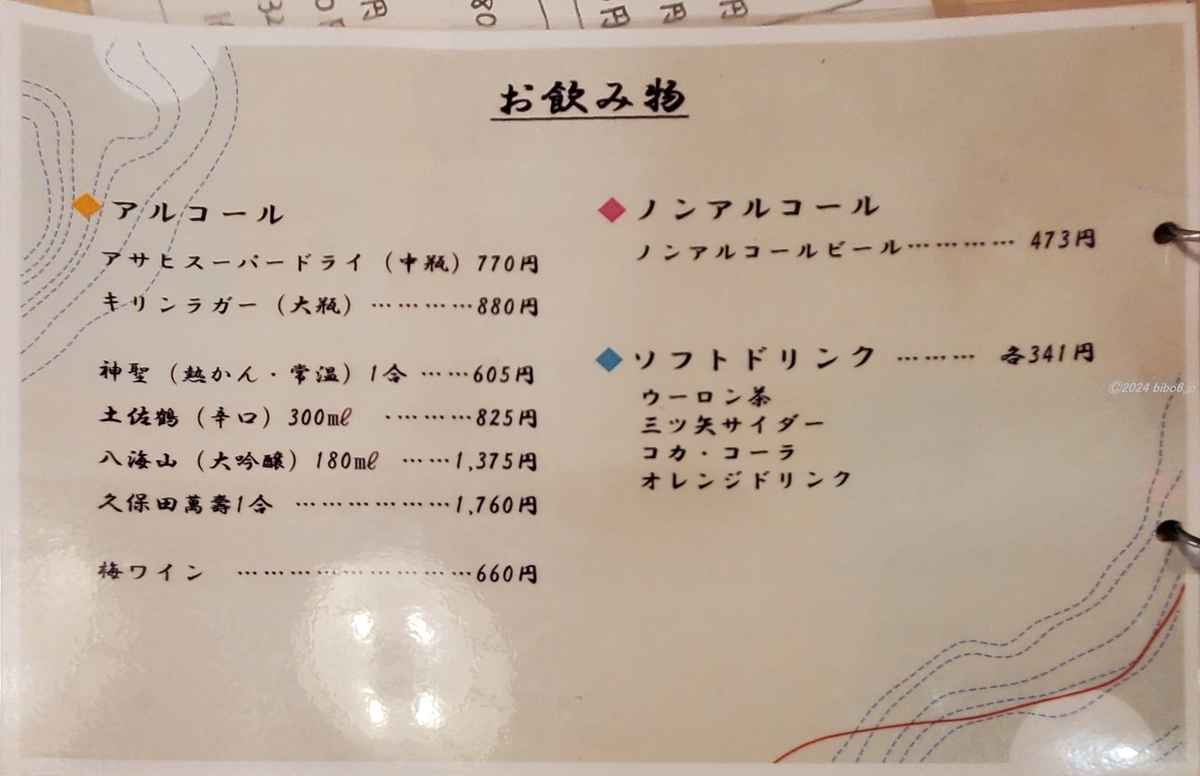 お飲み物
アルコール
アサヒスーパードライ（中瓶）770円
キリンラガー（大瓶）…………880円
神聖（熱かん・常温）1合……605円
土佐鶴（辛口）300㎖ ・………825円
八海山（大吟醸）180㎖ ……1,375円
久保田萬壽1合 ………………1,760円
梅ワイン ………………………660円
ノンアルコール
ノンアルコールビール…………473円
ソフトドリンク ……… 各341円
ウーロン茶
三ツ矢サイダー
コカ・コーラ
オレンジドリンク
©2024 bibo6.jp